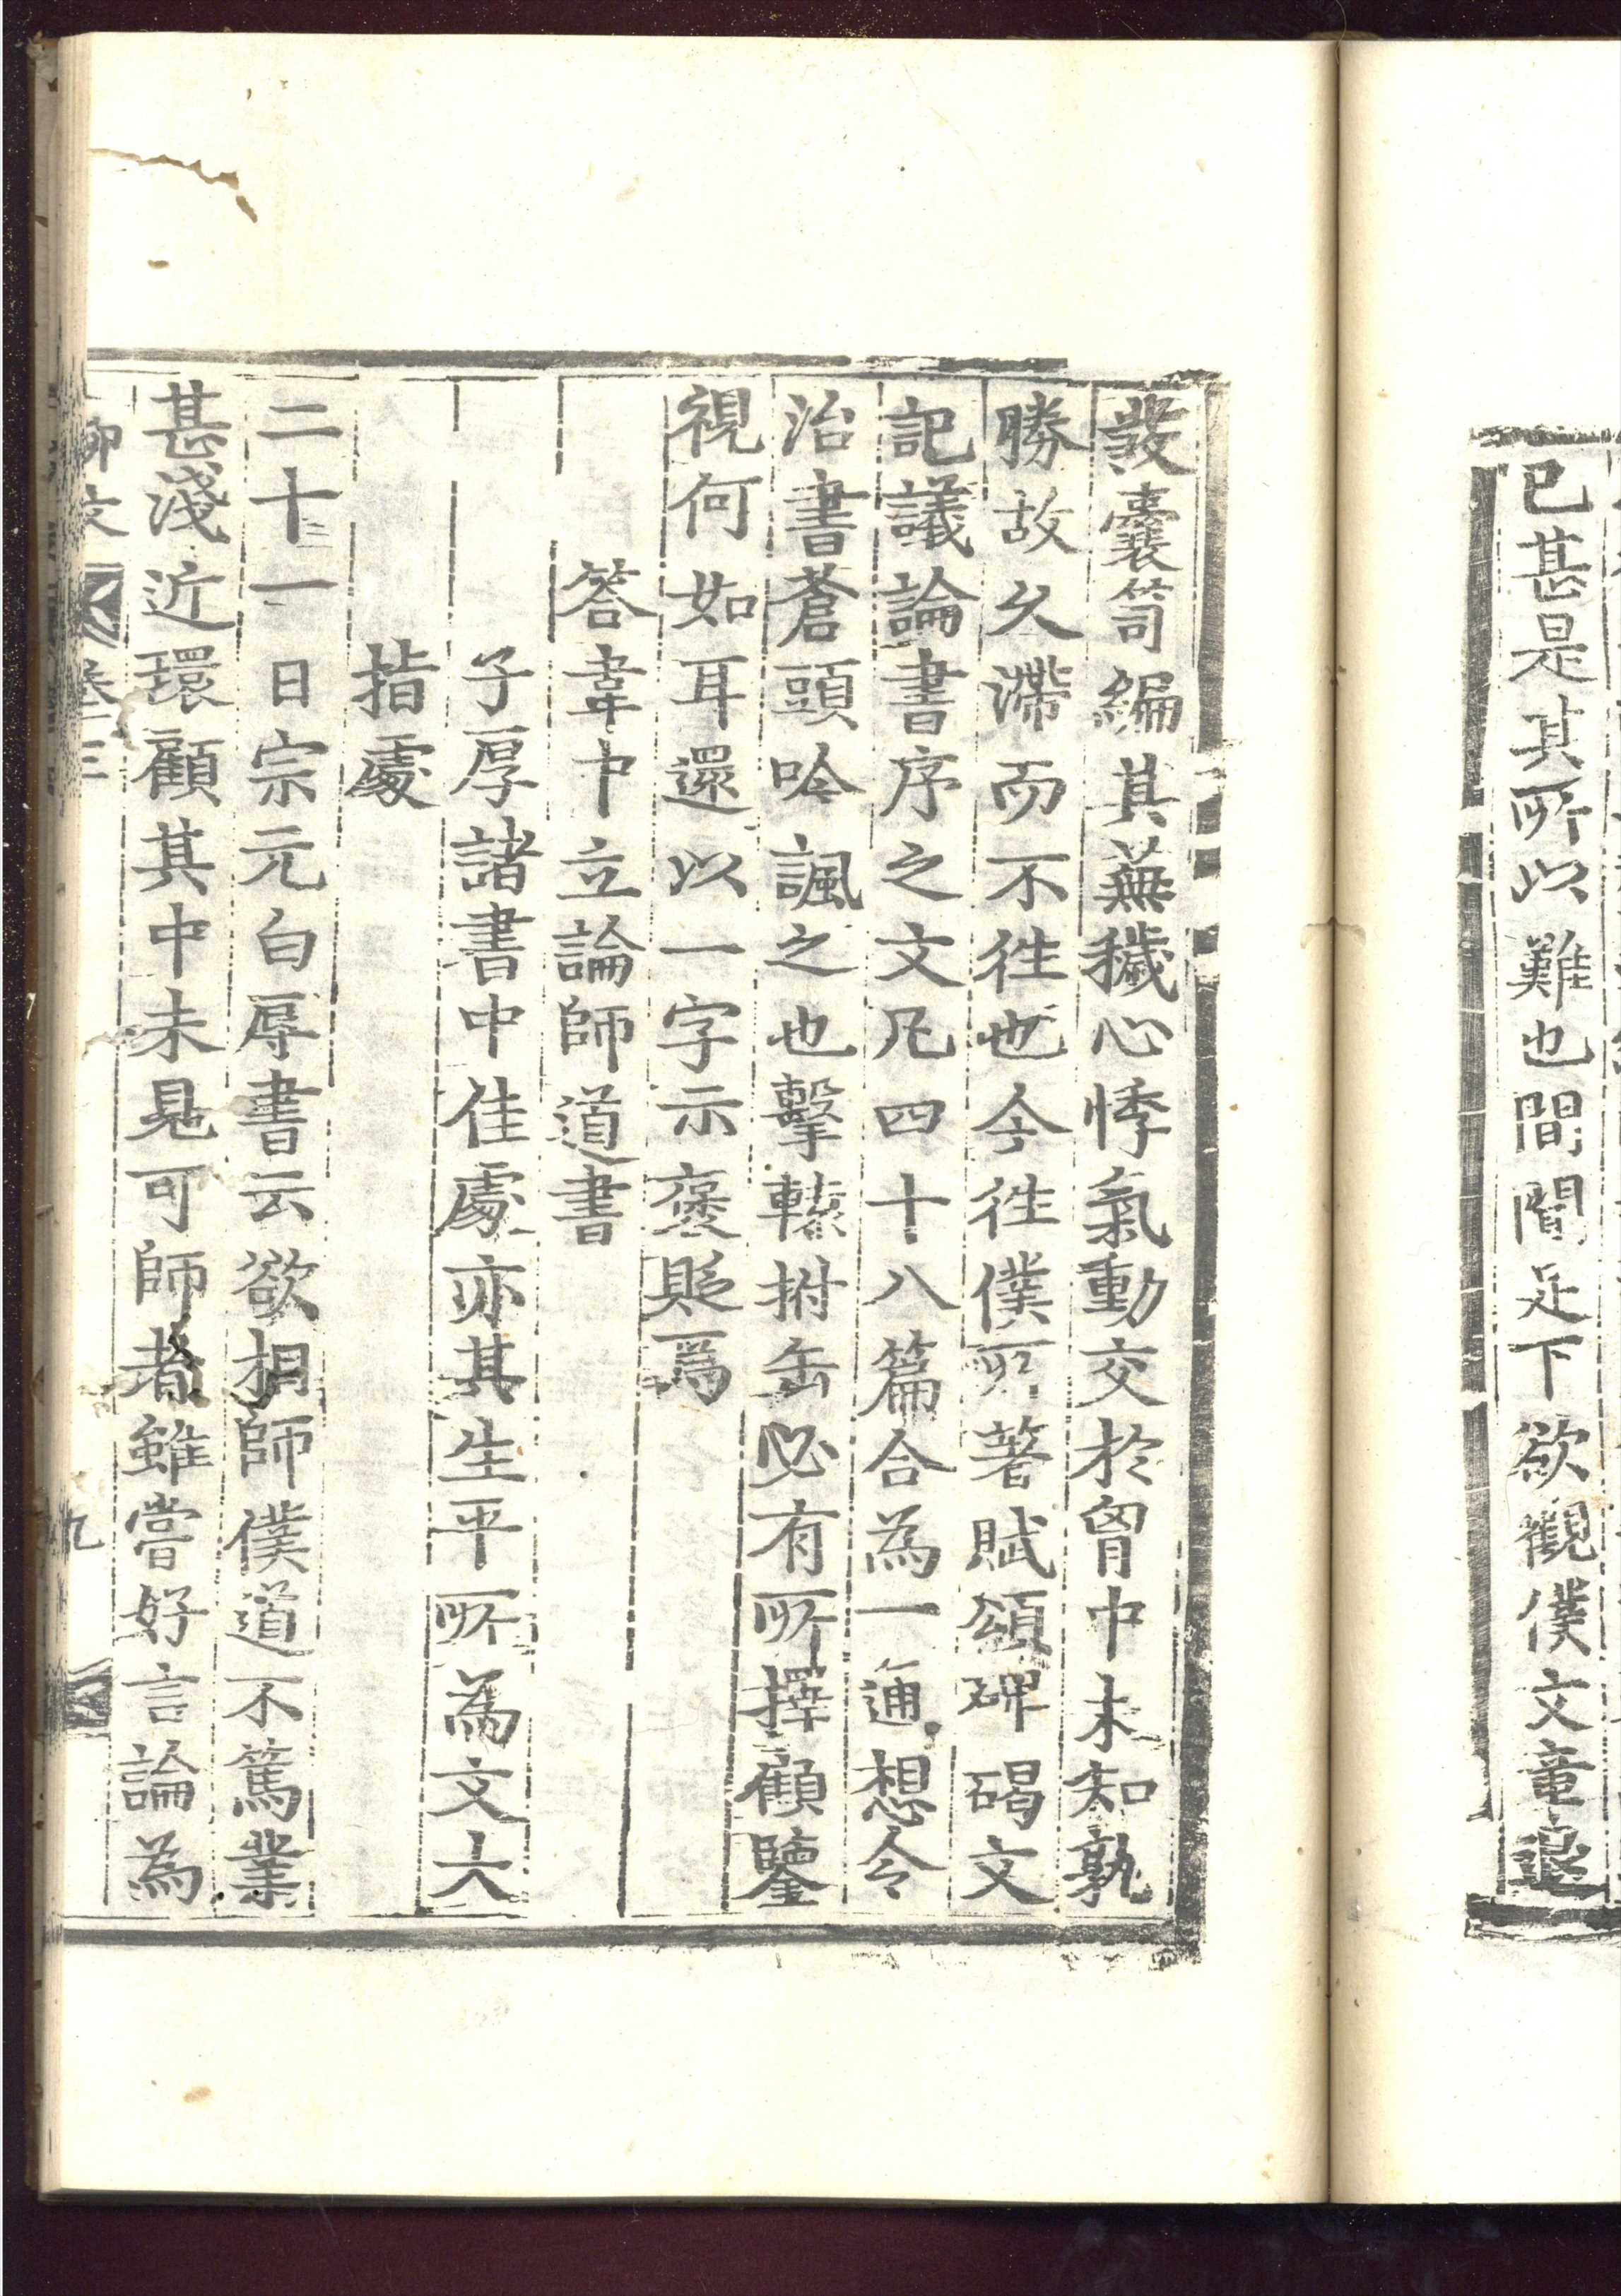 已甚是其所以難也間聞足下欲觀僕文章退
發囊笥編其蕪穢心悸氣動交於胷中未知孰
勝故久滯而不徃也今徃僕所著賦頌碑碣文
記議論書序之文凡四十八篇合為一通想令
治書蒼頭吟諷之也擊轅拊缶必有所擇顧鑒
視何如耳還以一字示褒貶焉
答韋中立論師道書
子厚諸書中佳處亦其生平所為文大
指處
二十一日宗元白辱書云欲相師僕道不篤業
甚淺近環顧其中未見可師者雖嘗好言論為
柳文 卷三 九